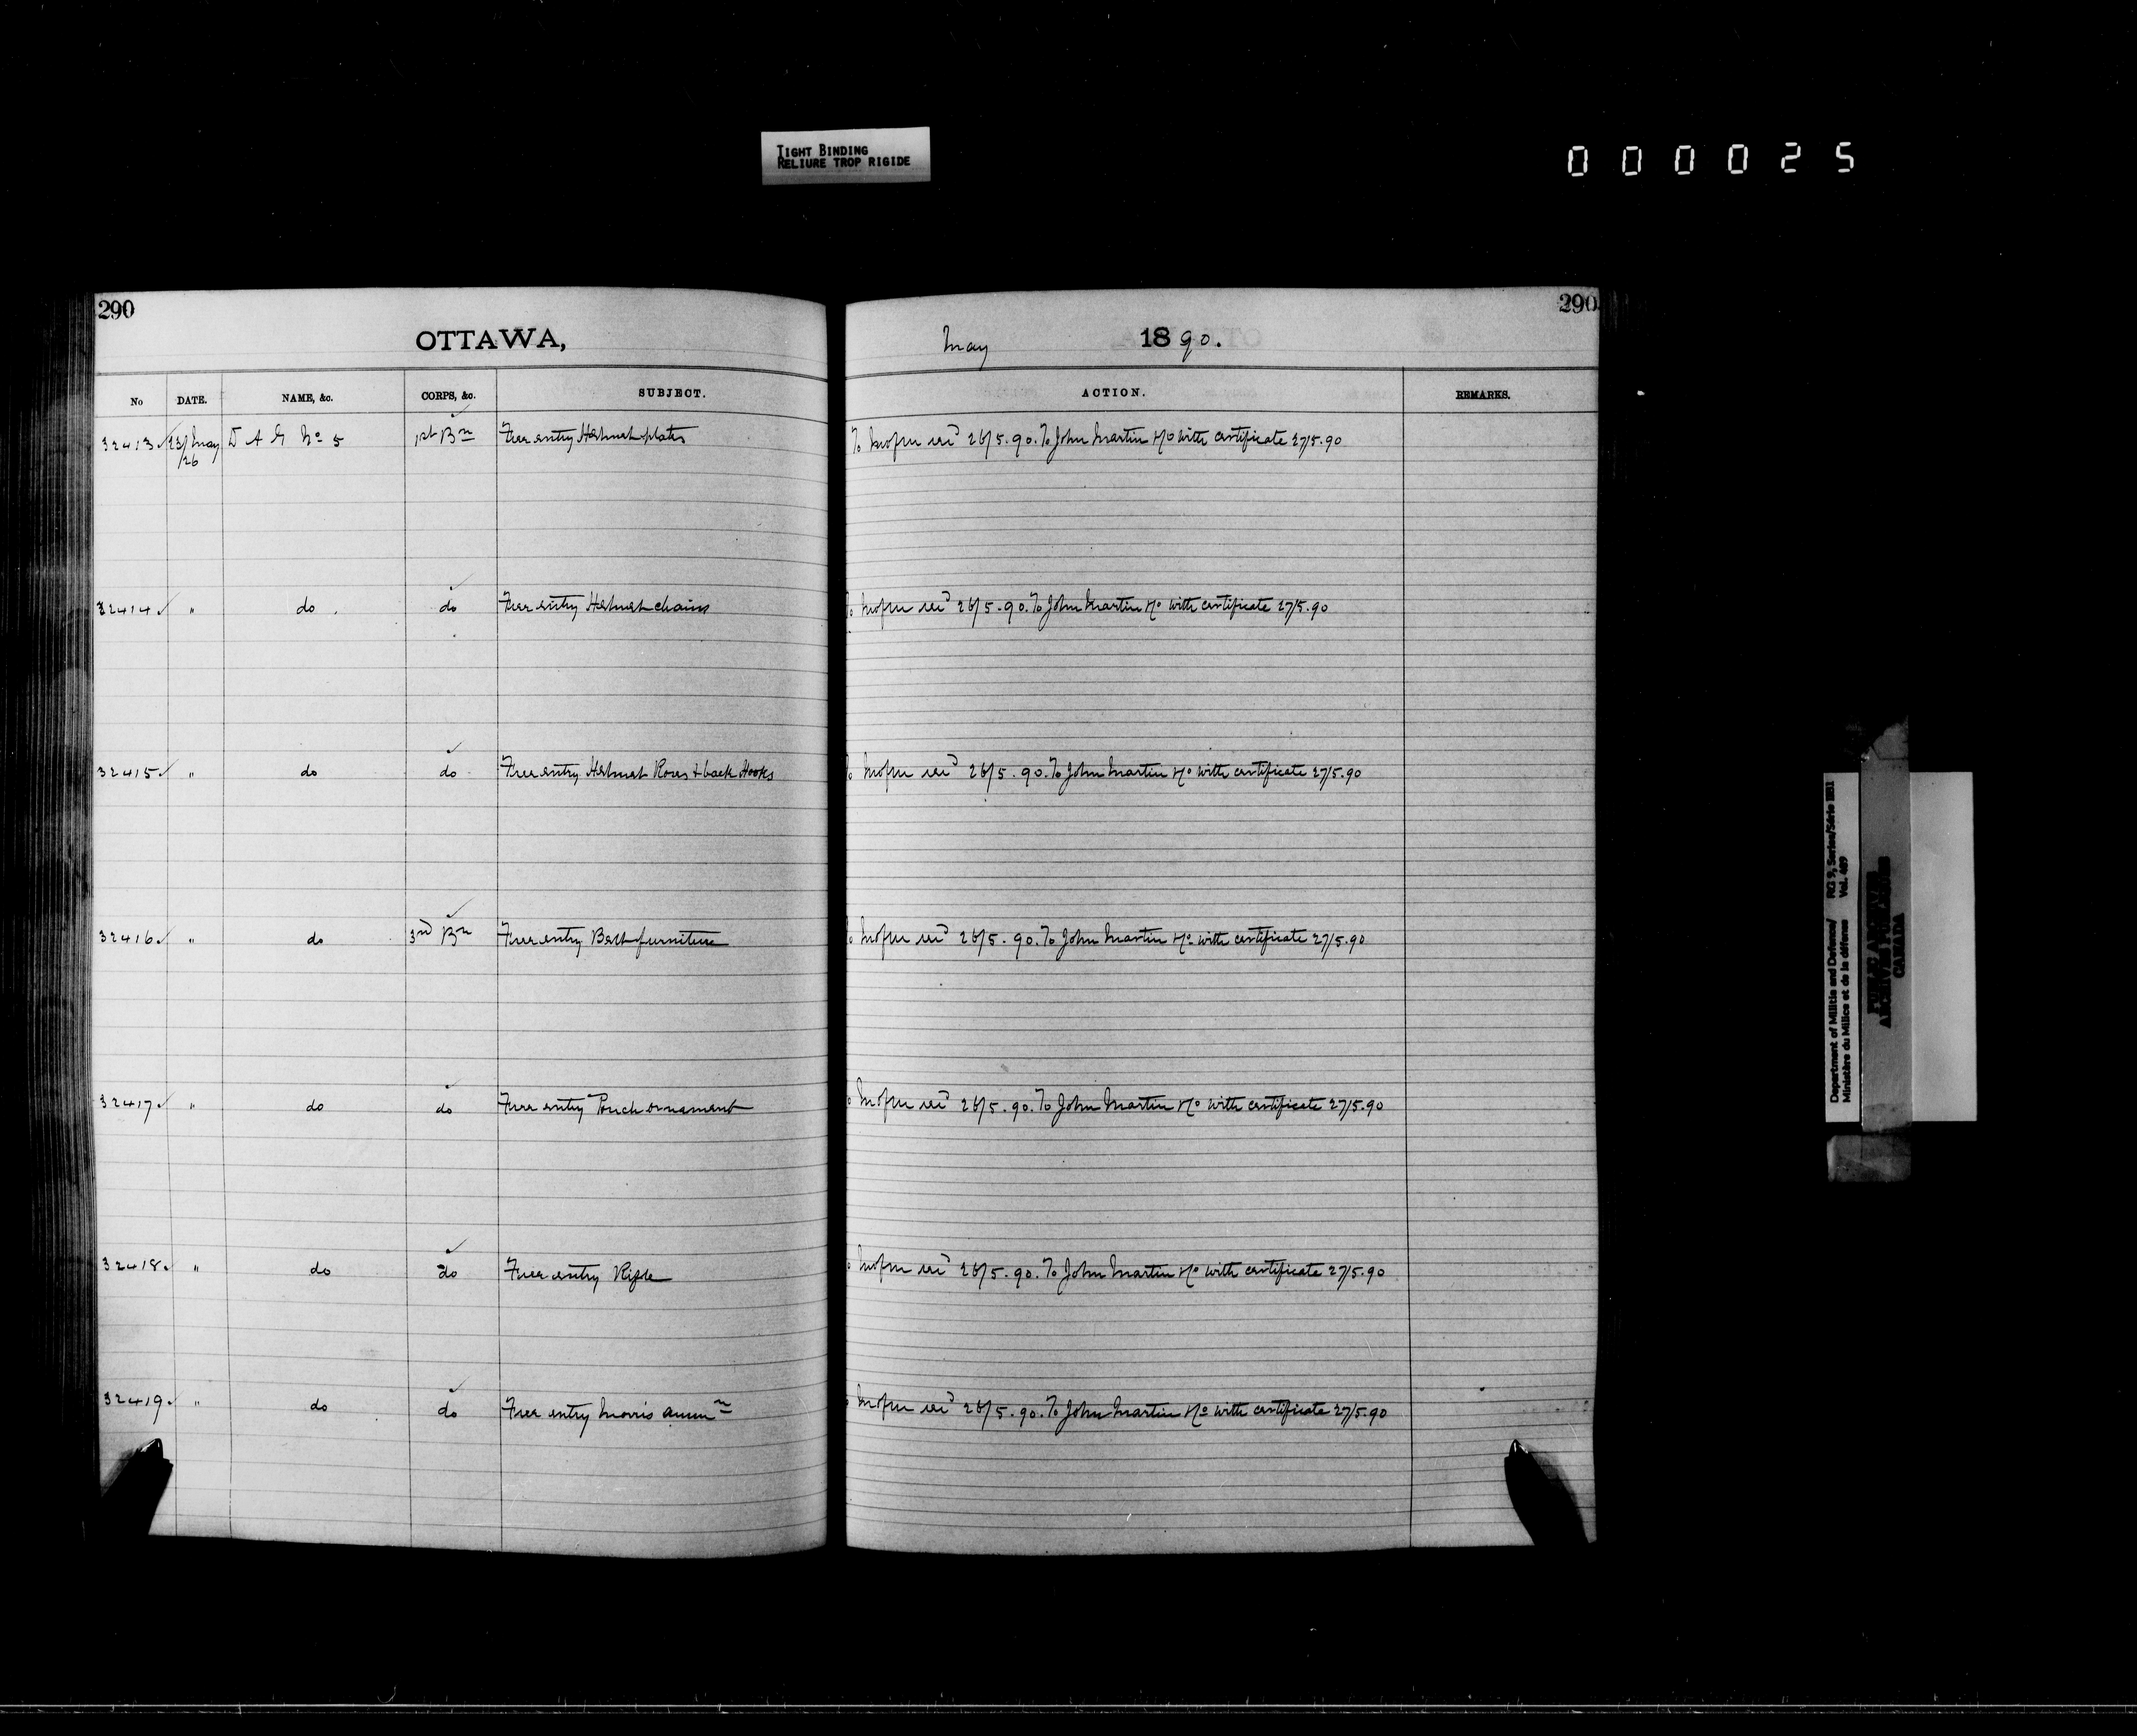 TIGHT BINDING
RELIURE TROP RIGIDE
000025
290
290
OTTAWA,
May 1890.
No DATE. NAME, &c. CORPS, &c. SUBJECT. ACTION. REMARKS.
32413 23/May D A G No 5 1st Bn Free entry Helmet plates To John Martin &Co with certificate 27/5.90
/26
32414 " do do Free entry Helmet chains 26/5.90. To John Martin &Co with certificate 27/5.90
32415 " do do Free entry Helmet Roses & back Hooks 26/5.90. To John Martin &Co with certificate 27/5.90
32416 " do 3rd Bn Free entry Belt furniture 26/5.90. To John Martin &Co with certificate 27/5.90
32417 " do do Free entry Pouch ornament 26/5.90. To John Martin &Co with certificate 27/5.90
32418 " do do Free entry Rifle 26/5.90. To John Martin &Co with certificate 27/5.90
32419 " do do Free entry Morris ammn 26/5.90. To John Martin &Co with certificate 27/5.90
Department of Militia and Defence/ RG 9, Series/Série IIB1
Ministère du Milice et de la défense Vol. 409
PUBLIC ARCHIVES
ARCHIVES PUBLIQUES
CANADA